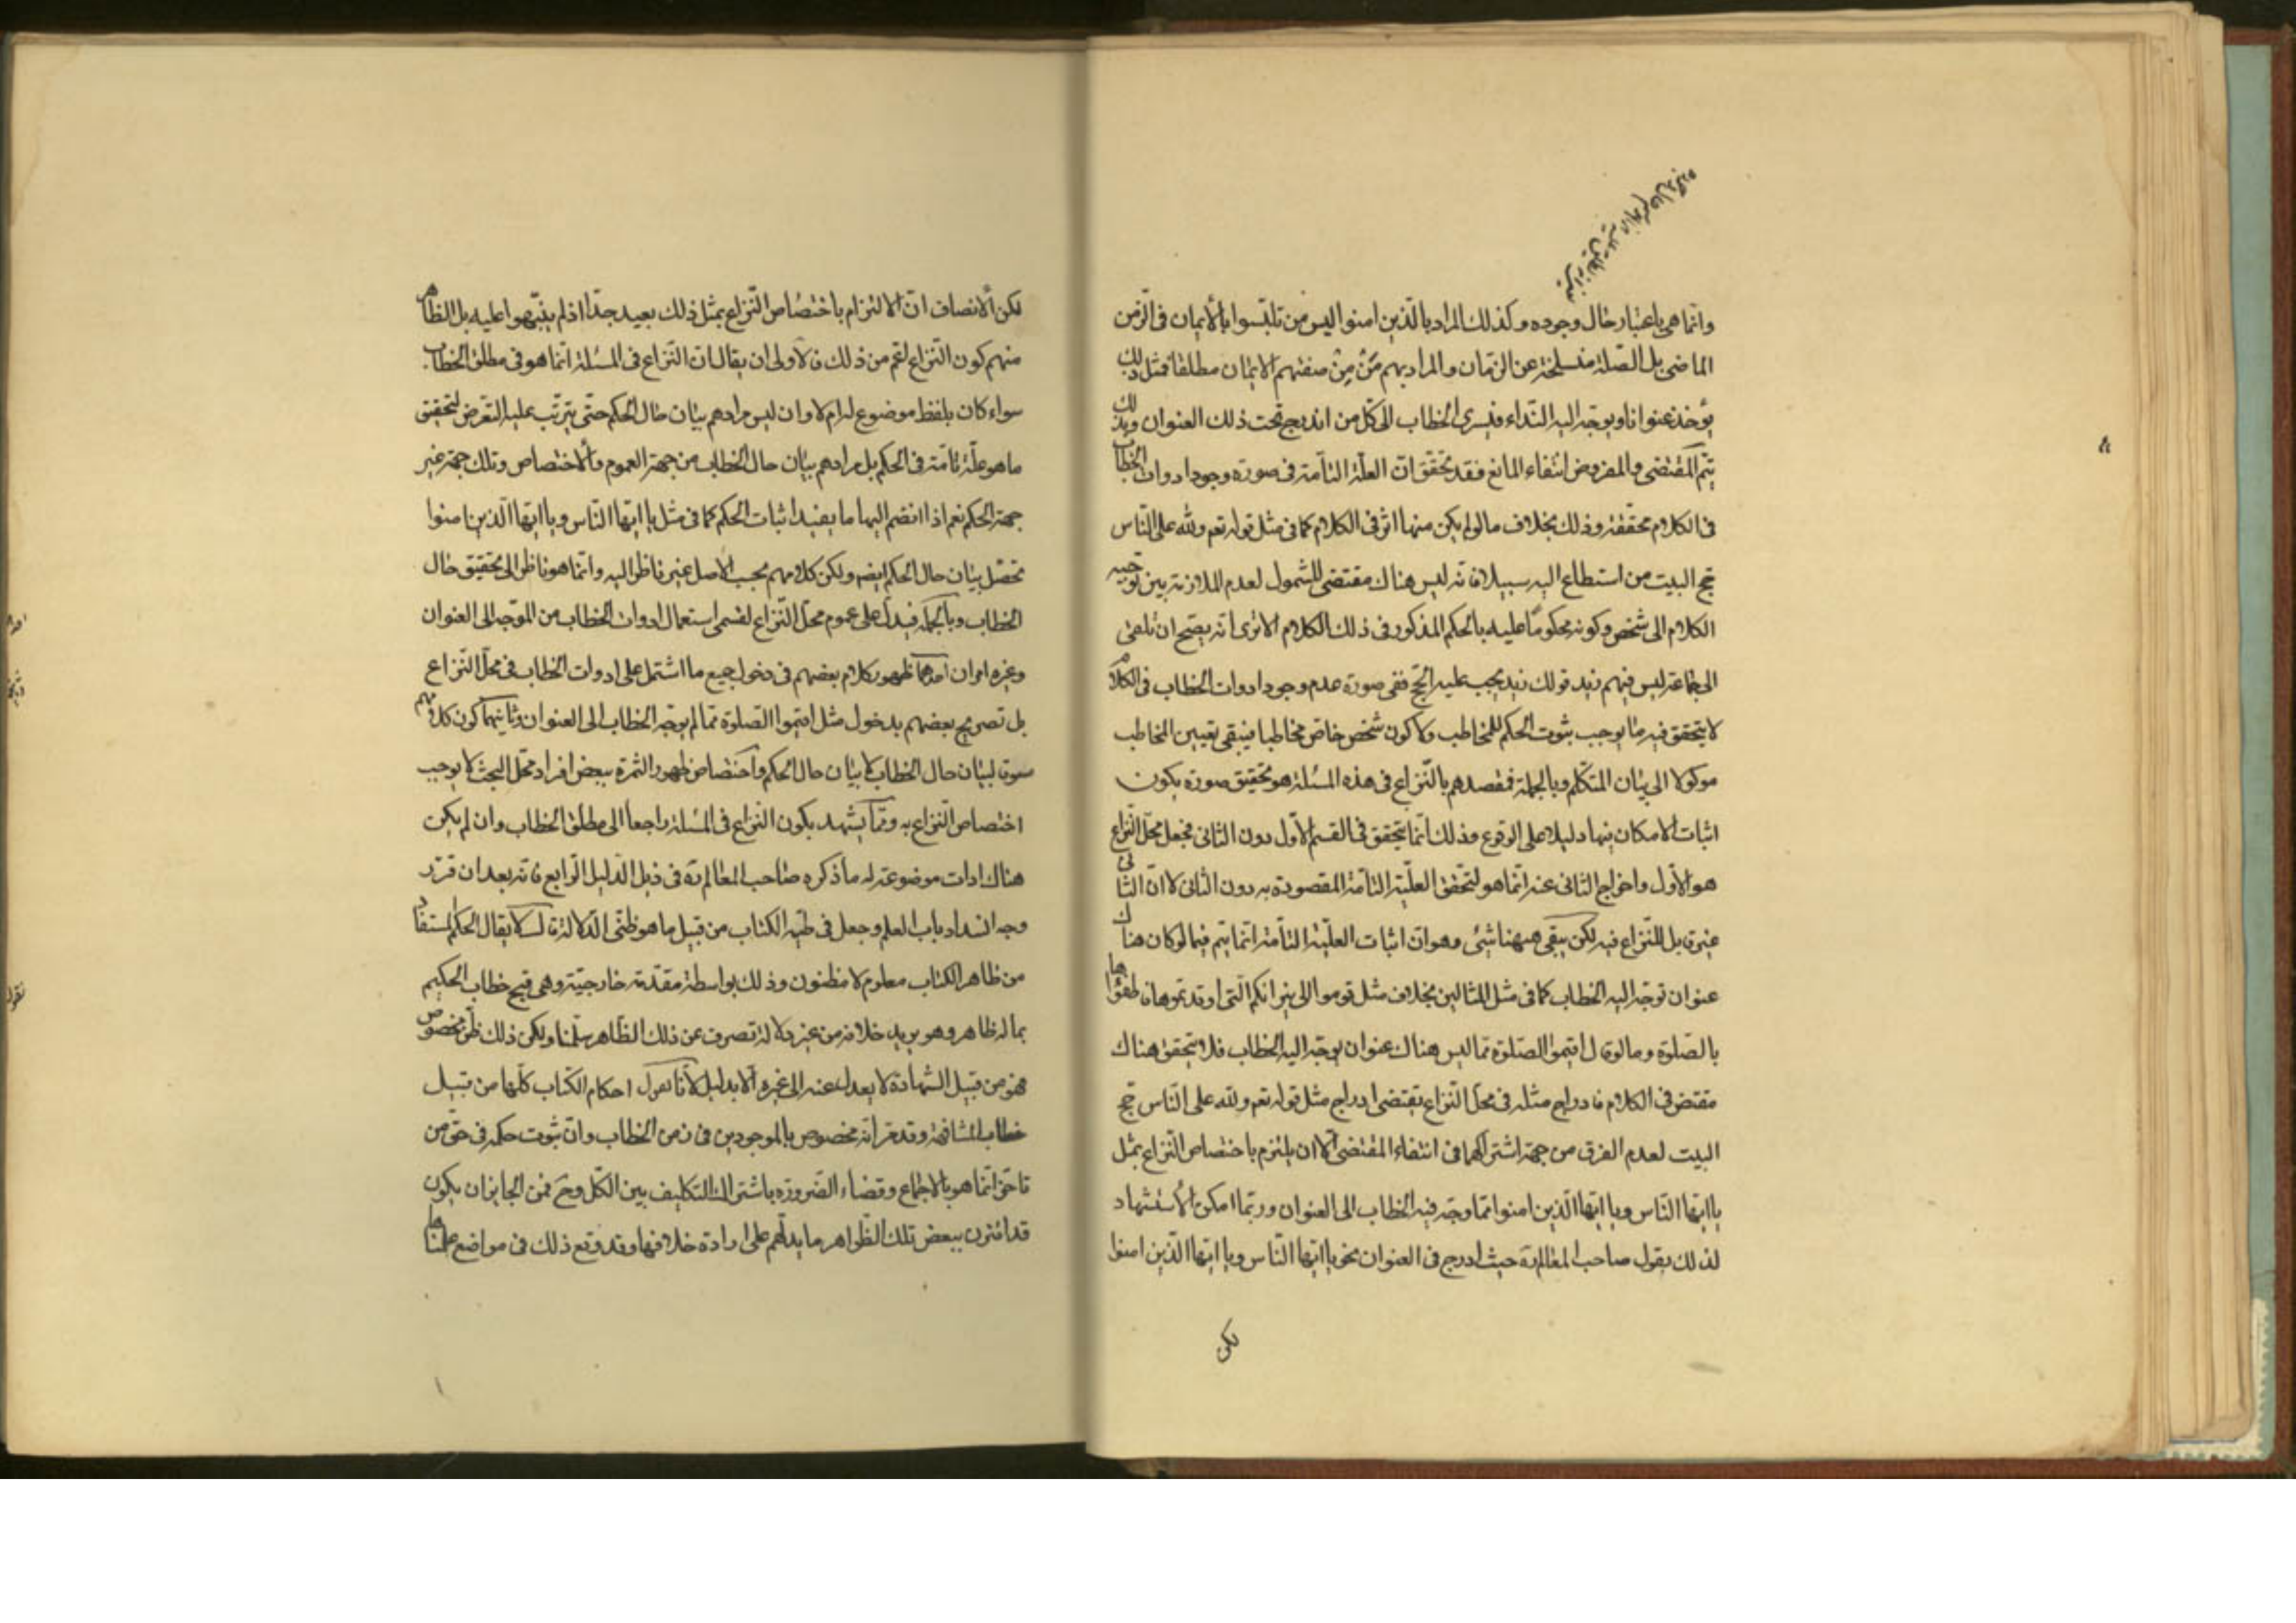 وانما هی باعتبار حال وجوده وکذلك المراد بالذین امنوا لیس من تلبّسوا بالایمان فی الزّمن
الماضی بل الصّلة منسلخة عن الزمان والمراد بهم مَنْ مِنْ صفتهم الایمان مطلقا فمثل ذلك
یؤخذ عنوانا ویوجّه الیه النّداء فیسری الخطاب الی کلّ من اندرج تحت ذلك العنوان وبذلك
یتم المقتضی والمفروض انتفاء المانع فقد تحقّق انّ العلّة التامّة فی صورة وجود ادوات الخطاب
فی الکلام محققة وذلك بخلاف ما لو لم یکن منها اثر فی الکلام کما فی مثل قوله تعم ولله علی النّاس
حج البیت من استطاع الیه سبیلا فانّه لیس هناك مقتضی للشمول لعدم الملازمة بین توجیه
الکلام الی شخص وکونه محکومًا علیه بالحکم المذکور فی ذلك الکلام الا تری انّه یصحّ ان تلقی
الی جماعة لیس فیهم زید قولك زید یجب علیه الحجّ ففی صورة عدم وجود ادوات الخطاب فی الکلام
لا یتحقق فیه ما یوجب ثبوت الحکم للمخاطب ولا کون شخص خاصّ مخاطبا فیبقی تعیین المخاطب
موکولا الی بیان المتکلّم وبالجملة فمقصدهم بالنّزاع فی هذه المسئلة هو تحقیق صورة یکون
اثبات الامکان فیها دلیلا علی الوقوع وذلك انّما یتحقق فی القسم الاوّل دون الثانی فجعل محلّ النّزاع
هو الاوّل واخراج الثانی عنه انّما هو لتحقق العلّیة التامّة المقصودة به دون الثانی لا انّ الثانی
غیر قابل للنّزاع فیه لکن یبقی هیهنا شیٔ وهو انّ اثبات العلّیة التامّة انّما یتم فیما لو کان هناك
عنوان توجّه الیه الخطاب کما فی مثل المثالین بخلاف مثل قوموا الی نیرانکم الّتی اوقدتموها فاطفؤها
بالصّلوة وما لو قال اقیموا الصّلوة ممّا لیس هناك عنوان یوجّه الیه الخطاب فلا یتحقق هناك
مقتض فی الکلام فادراج مثله فی محلّ النّزاع یقتضی ادراج مثل قوله تعم ولله علی النّاس حجّ
البیت لعدم الفرق من جهة اشتراکهما فی انتفاء المقتضی الّا ان یلتزم باختصاص النّزاع بمثل
یا ایّها النّاس ویا ایّها الّذین امنوا ممّا وجّه فیه الخطاب الی العنوان وربّما امکن الاستشهاد
لذلك بقول صاحب المعالم ره حیث ادرج فی العنوان نحو یا ایّها النّاس ویا ایّها الّذین امنوا
لکن
لکن الانصاف انّ الالتزام باختصاص النّزاع بمثل ذلك بعید جدّا اذ لم ینبّهوا علیه بل الظاهر
منهم کون النّزاع اعم من ذلك فالاولی ان یقال انّ النّزاع فی المسئلة انّما هو فی مطلق الخطاب
سواء کان بلفظ موضوع له ام لا وان لیس مرادهم بیان حال الحکم حتّی یترتّب علیه التعرّض لتحقیق
ما هو علّة تامّة فی الحکم بل مرادهم بیان حال الخطاب من جهة العموم والاختصاص وتلك جهة غیر
جهة الحکم نعم اذا انضم الیها ما یفید اثبات الحکم کما فی مثل یا ایّها النّاس ویا ایّها الّذین امنوا
تحصّل بیان حال الحکم ایضم ولکن کلامهم بحسب الاصل غیر ناظر الیه وانّما هو ناظر الی تحقیق حال
الخطاب وبالجملة فیدلّ علی عموم محلّ النّزاع لقسمی استعمال ادوات الخطاب من الموجّه الی العنوان
وغیره امران احدهما ظهور کلام بعضهم فی دخول جمیع ما اشتمل علی ادوات الخطاب فی محلّ النّزاع
بل تصریح بعضهم بدخول مثل اقیموا الصّلوة ممّا لم یوجّه الخطاب الی العنوان وثانیهما کون کلامهم
مسوقا لبیان حال الخطاب لا بیان حال الحکم واختصاص ظهور الثمرة ببعض افراد محلّ البحث لا یوجب
اختصاص النّزاع به وممّا یشهد بکون النّزاع فی المسئلة راجعا الی مطلق الخطاب وان لم یکن
هناك ادات موضوعة له ما ذکره صاحب المعالم ره فی ذیل الدّلیل الرّابع فانّه بعد ان قرّر
وجه انسداد باب العلم وجعل فی طیّه الکتاب من قبیل ما هو ظنّی الدّلالة قال لا یقال الحکم المستفاد
من ظاهر الکتاب معلوم لا مظنون وذلك بواسطة مقدّمة خارجیّة وهی قبح خطاب الحکیم
بما له ظاهر وهو یرید خلافه من غیر دلالة تصرف عن ذلك الظّاهر سلّمنا ولکن ذلك ظنّ مخصوص
فهو من قبیل الشهادة لا یعدل عنه الی غیره الّا بدلیل لانّا نقول احکام الکتاب کلّها من قبیل
خطاب المشافهة وقد مرّ انّه مخصوص بالموجودین فی زمن الخطاب وانّ ثبوت حکمه فی حقّ من
تاخّر انّما هو بالاجماع وقضاء الضّرورة باشتراك التکلیف بین الکلّ وح فمن الجایز ان یکون
قد اقترن ببعض تلك الظّواهر ما یدلّهم علی ارادة خلافها وقد وقع ذلك فی مواضع علمناها